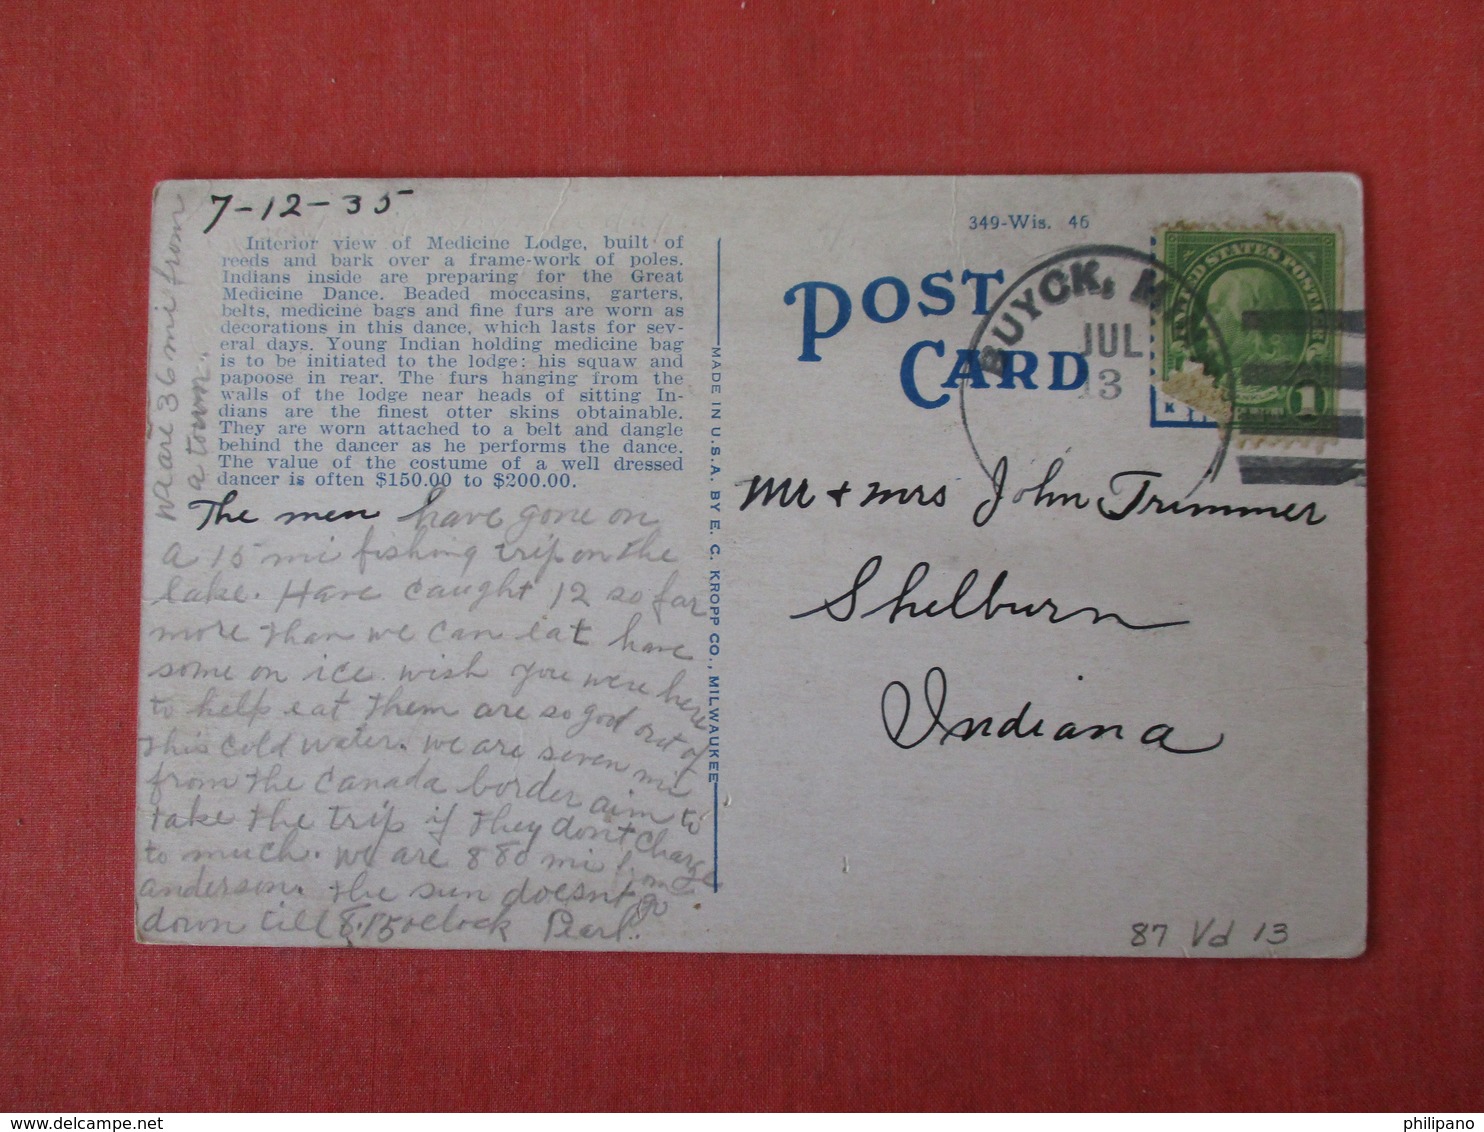 7-12-35
Interior view of Medicine Lodge, built of
reeds and bark over a frame-work of poles.
Indians inside are preparing for the Great
Medicine Dance. Beaded moccasins, garters,
belts, medicine bags and fine furs are worn as
decorations in this dance, which lasts for sev-
eral days. Young Indian holding medicine bag
is to be initiated to the lodge; his squaw and
papoose in rear. The furs hanging from the
walls of the lodge near heads of sitting In-
dians are the finest otter skins obtainable.
They are worn attached to a belt and dangle
behind the dancer as he performs the dance.
The value of the costume of a well dressed
dancer is often $150.00 to $200.00.
The men have gone on
a 15 mi fishing trip on the
lake. Have caught 12 so far
more than we can eat have
some on ice. wish you were here
to help eat them are so good out of
this cold water. we are seven mi
from the Canada border aim to
take the trip if they don't charge
to much. we are 880 mi from
anderson. the sun doesnt go
down till 8.15 oclock Pearl.
we are 36 mi from
a town.
MADE IN U.S.A. BY E. C. KROPP CO., MILWAUKEE
349-Wis. 46
POST
CARD
BUYCK, M
JUL
13
UNITED STATES POSTAGE
1
Mr + mrs John Trimmer
Shelburn
Indiana
87 Vd 13
http://www.delcampe.net
philipano